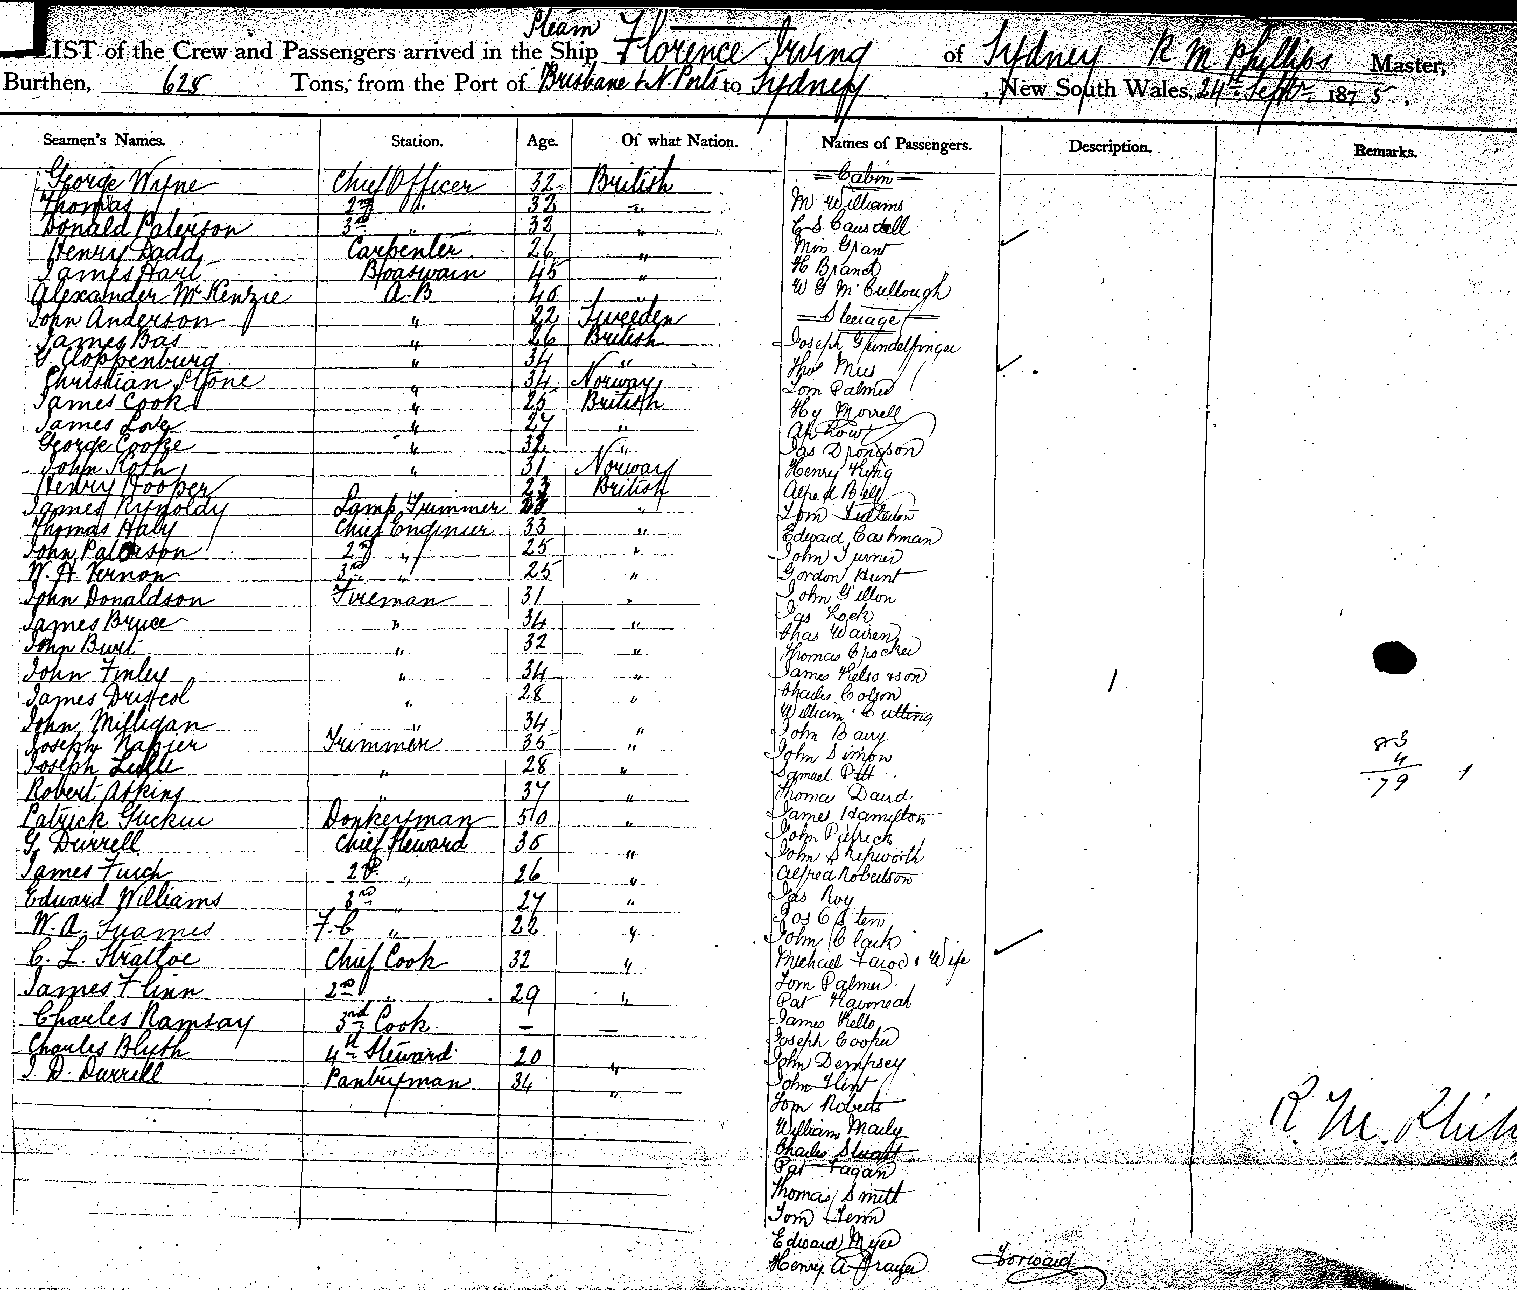 LIST of the Crew and Passengers arrived in the Steam Ship Florence Irving of Sydney R M Phillips Master,
Burthen, 625 Tons, from the Port of Brisbane & N Ports to Sydney, New South Wales, 24th Septbr 1875.
Seamen's Names. Station. Age. Of what Nation. Names of Passengers. Description. Remarks.
George Wyne Chief Officer 32 British = Cabin =
Thomas 2nd " 32 " M Williams
Donald Paterson 3rd " 32 " E S Causdell
Henry Dadd Carpenter 26 " Miss Grant
James Hart Boaswain 45 " H Brand
Alexander McKenzie A.B 40 " W G McCullough
John Anderson " 22 Sweeden = Steerage =
James Bas " 26 British Joseph Grindelfinger
G Cloppenburg " 34 " Thos
Christian Stone " 34 Norway Tom Palmer
James Cook " 25 British Hy Morrell
James Love " 27 " Ah Low
George Cooke " 32 " Jas Drongson
John Roth " 31 Norway Henry King
Henry Hooper 23 British Alfred Bell
James Rynoldy Lamp Trimmer " Tom
Thomas Haly Chief Engineer 33 " Edward Cashman
John Paterson 2nd " 25 " John Turner
W. H Vernon 3rd " 25 " Gordon Hunt
John Donaldson Fireman 31 " John Gillon
James Bruce " 34 " Jas Lock
John Burt " 32 " Chas Warren
Thomas Crocker
John Finley " 34 " James
James Driscol " 28 " Charles Colson
William Cutting
John Milligan " 34 " John Barry
Joseph Napier Trimmer 35 " John Simon
83
4
79
Joseph " 28 " Samuel Pitt
Robert Askins " 37 " Thomas David
Patrick Donkeyman 50 " James Hamilton
G. Durrell Chief Steward 35 " John
John Shepworth
James 2nd " 26 " Alfred Robertson
Edward Williams 3rd " 27 " Jas Roy
W. A. F.C " 22 "
John Clark
C. L. Chief Cook 32 " Michael & Wife
Tom Palmer
James Flinn 2nd " 29 " Pat
Charles Ramsay 3rd Cook — — James Kelly
Joseph Cooper
Charles Blyth 4th Steward 20 " John Dempsey
J. D. Durrell Pantryman 34 " John Flint
Tom Roberts
William Maily
R. M.
Charles Stuart
Pat Fagan
Thomas Smith
Tom
Edward Myee
Henry A Frayer Forward